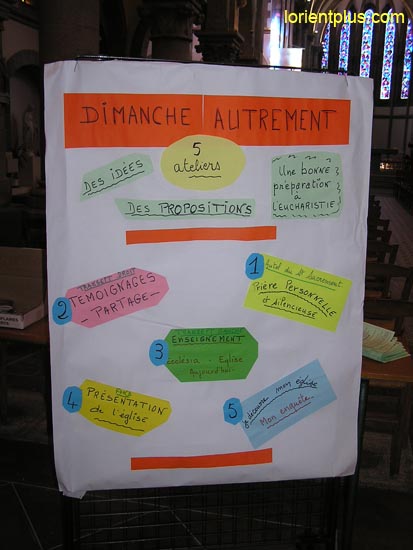 lorientplus.com
DIMANCHE AUTREMENT
5
ateliers
DES IDÉES
DES PROPOSITIONS
Une BONNE
préparation
à
L'EUCHARISTIE
1
Autel du St Sacrement
Prière Personnelle
et silencieuse
2
TRANSEPT DROIT
TEMOIGNAGES
PARTAGE
3
ENSEIGNEMENT
Ecclesia - Eglise
Aujourd'hui
4
PRÉSENTATION
de l'église
5
je découvre mon église
Mon enquête